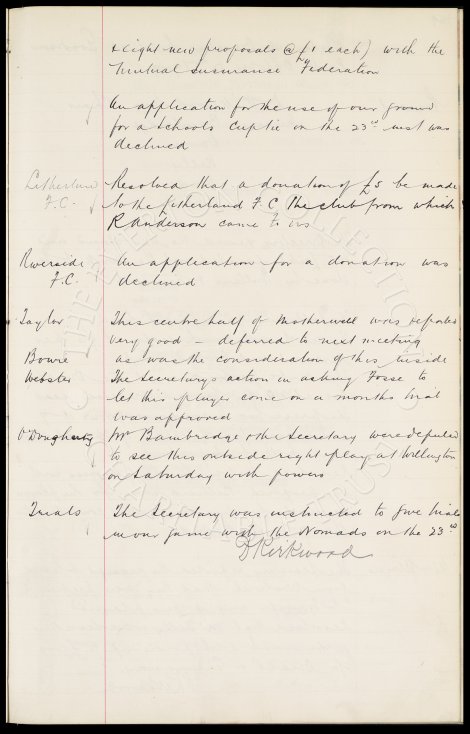 & Eight new proposals @ £1 each) with the
Mutual Insurance Federation
An application for the use of our ground
for a Schools Cup tie on the 23rd inst was
declined
Litherland Resolved that a donation of £5 be made
F.C. to the Litherland F.C. the club from which
R Anderson came to us
Riverside An application for a donation was
F.C. declined
Taylor This centre half of Motherwell was reported
very good - deferred to next meeting
Bowie as was the consideration of this inside
Webster The Secretarys action in asking Fosse to
let this player come on a months trial
was approved
O'Dougherty Mr Bainbridge & the Secretary were deputed
to see this outside right play at Willington
on Saturday with powers
Trials The Secretary was instructed to give trials
in our game with the Nomads on the 23rd
D Kirkwood
THE EVERTON COLLECTION
CHARITABLE TRUST